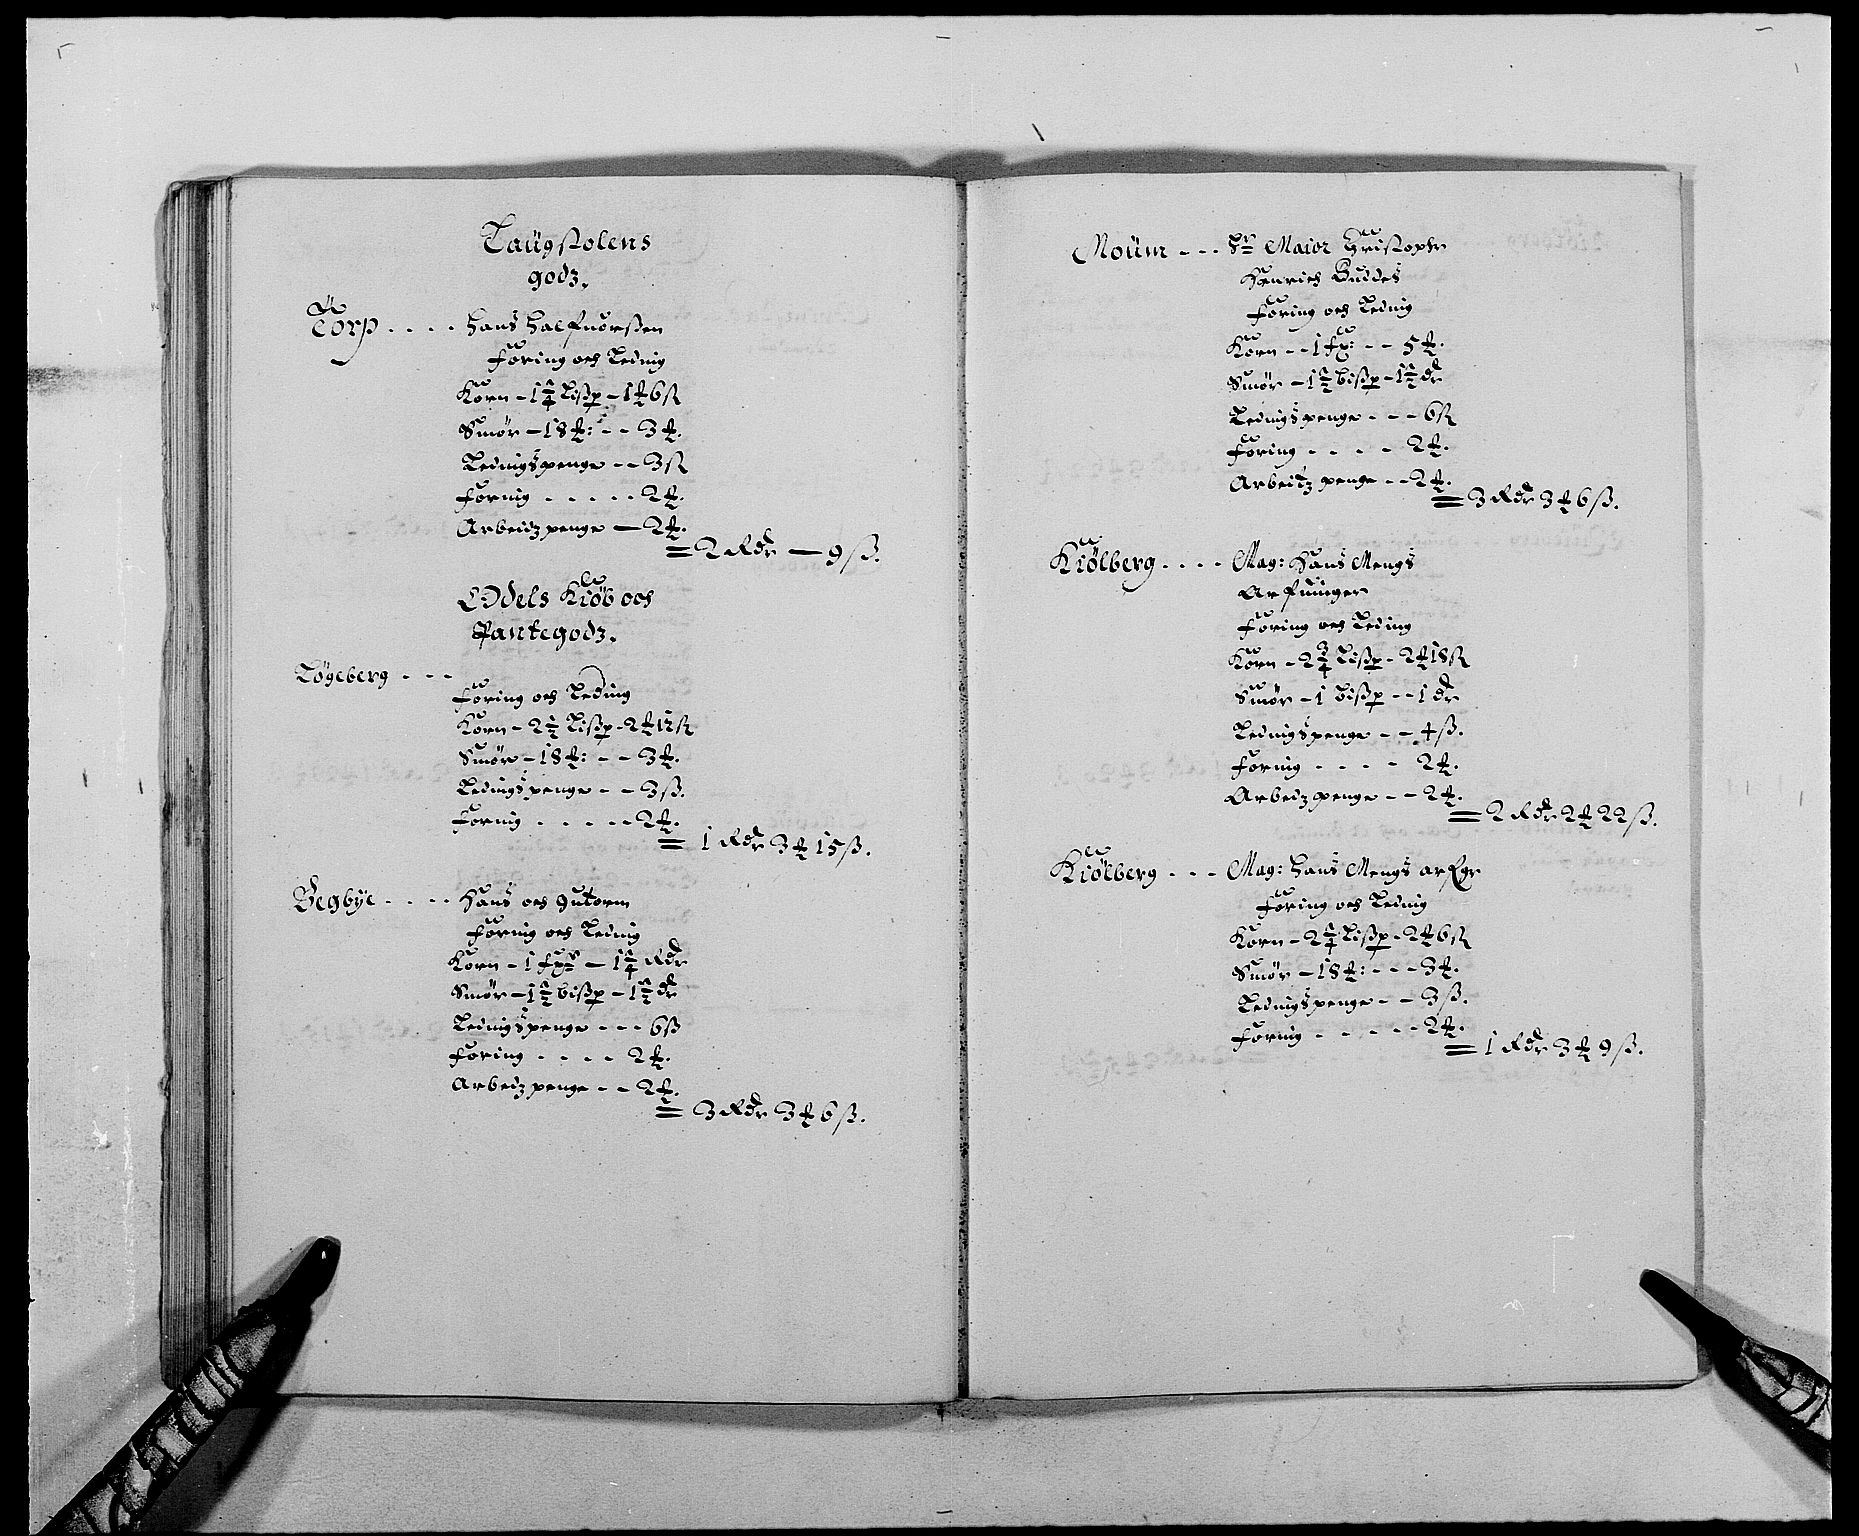 Laugstolens
godz.
Torp .... Hans Halfuorßen
Foring och Leding
Korn - 1 1/4 Lißp - 1 ꝶ 6 ß
Smør - 18 ꝶ: - - 3 ꝶ.
Ledingspenge - - 3 ß
Foring ..... 2 ꝶ.
Arbeidz penge — 2 ꝶ.
= 2 Rdr — 9 ß.
Oddels Kiøb och
Pantegodz.
Løgeberg - - -
Foring och Leding
Korn - 2 1/2 Lißp - 2 ꝶ 12 ß
Smør - 18 ꝶ: - - 3 ꝶ.
Ledingspenge - - 3 ß.
Foring ..... 2 ꝶ.
= 1 Rdr 3 ꝶ 15 ß.
Begbye .... Hans och Gutorm
Foring och Leding
Korn - 1 fx: - 1 1/4 Rdr
Smør - 1 1/2 bißp - 1 1/2 dr
Ledingspenge - - - 6 ß
Foring .... 2 ꝶ.
Arbeidz penge - - 2 ꝶ.
= 3 Rdr 3 ꝶ 6 ß.
Moum - - - Hr Maior Christophr
Henrich Buddes
Foring och Leding
Korn - - 1 fx: - - 5 ꝶ.
Smør - 1 1/2 bißp - 1 1/2 dr
Ledingspenge - - - 6 ß
Foring .... 2 ꝶ.
Arbeidz penge - - 2 ꝶ.
= 3 Rdr 3 ꝶ 6 ß.
Kiølberg .... Mag: Hans Mengs
Arfuinger
Foring och Leding
Korn - 2 3/4 Lißp - 2 ꝶ 18 ß
Smør - 1 bißp - - 1 dr
Ledingspenge - - 4 ß.
Foring .... 2 ꝶ.
Arbeidz penge - - 2 ꝶ.
= 2 Rdr 2 ꝶ 22 ß.
Kiølberg - - - Mag: Hans Mengs arfgr
Foring och Leding
Korn - 2 1/4 Lißp - 2 ꝶ 6 ß
Smør - 18 ꝶ: - - - 3 ꝶ.
Ledingspenge - - 3 ß.
Foring ..... 2 ꝶ.
= 1 Rdr 3 ꝶ 9 ß.